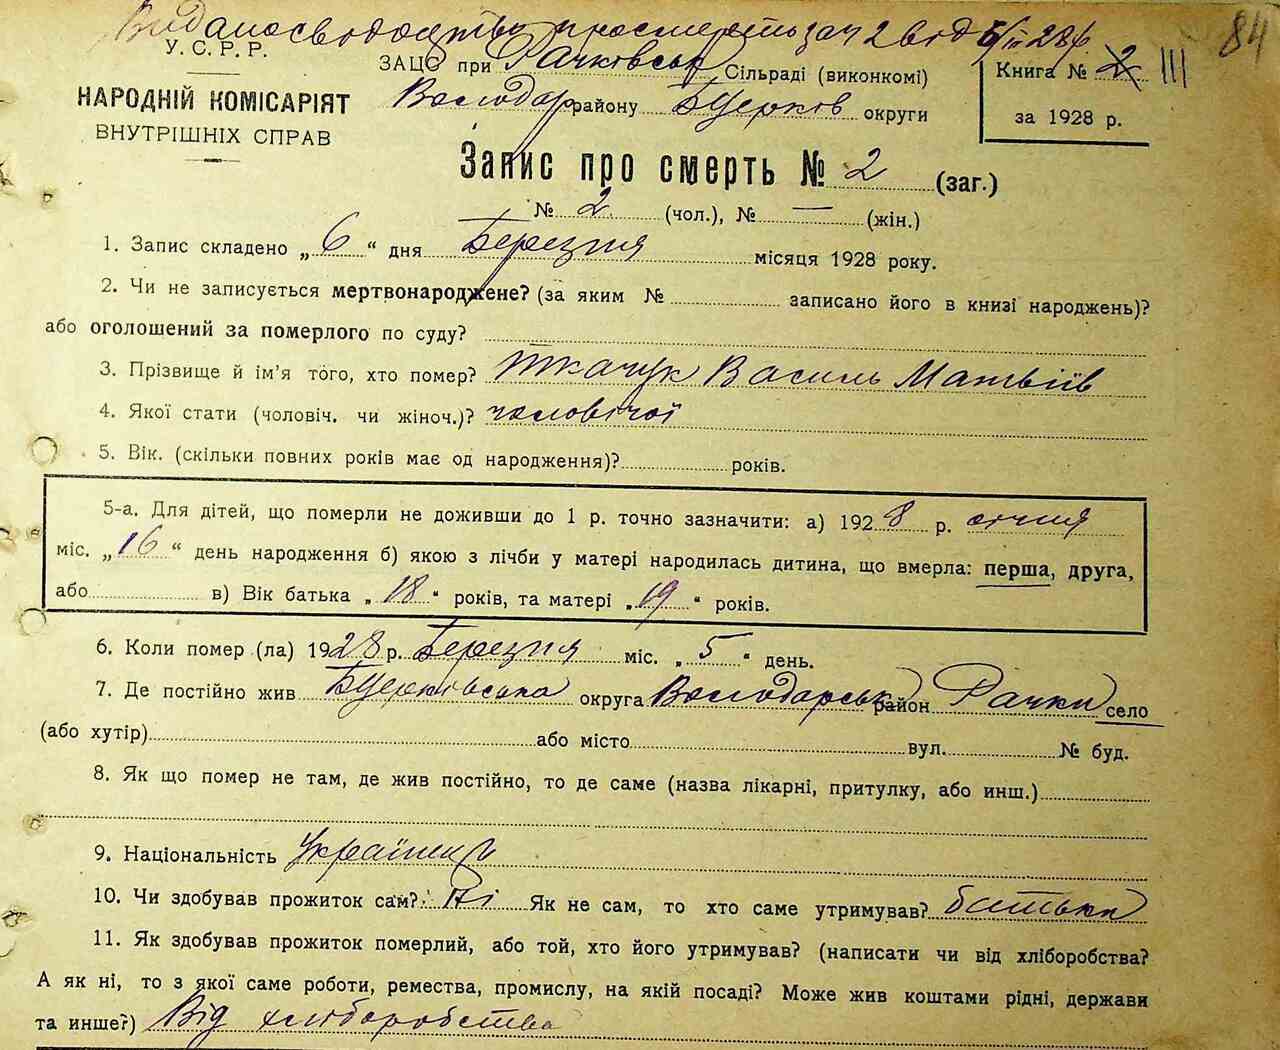 Видано свідоцтво про смерть за ч 2 від 6/III 28 р
84
У.С.Р.Р.
НАРОДНІЙ КОМІСАРІЯТ
ВНУТРІШНІХ СПРАВ
ЗАЦС при Рачковськ Сільраді (виконкомі)
Володар району Бцерков округи
Книга № 2 III
за 1928 р.
Запис про смерть № 2 (заг.)
№ 2 (чол.), № — (жін.)
1. Запис складено „6“ дня Березня місяця 1928 року.
2. Чи не записується мертвонароджене? (за яким № записано його в книзі народжень)?
або оголошений за померлого по суду?
3. Прізвище й ім'я того, хто помер? Ткачук Василь Матвіїв
4. Якої стати (чоловіч. чи жіноч.)? чоловічої
5. Вік. (скільки повних років має од народження)? років.
5-а. Для дітей, що померли не доживши до 1 р. точно зазначити: а) 1928 р. січня
міс. „16“ день народження б) якою з лічби у матері народилась дитина, що вмерла: перша, друга,
або в) Вік батька „18“ років, та матері „19“ років.
6. Коли помер (ла) 1928 р. Березня міс. „5“ день.
7. Де постійно жив Бцерківська округа Володарськ район Рачки село
(або хутір) або місто вул. № буд.
8. Як що помер не там, де жив постійно, то де саме (назва лікарні, притулку, або инш.)
9. Національність Українець
10. Чи здобував прожиток сам? Ні Як не сам, то хто саме утримував? батьки
11. Як здобував прожиток померлий, або той, хто його утримував? (написати чи від хліборобства?
А як ні, то з якої саме роботи, ремества, промислу, на якій посаді? Може жив коштами рідні, держави
та инше?) Від хліборобства